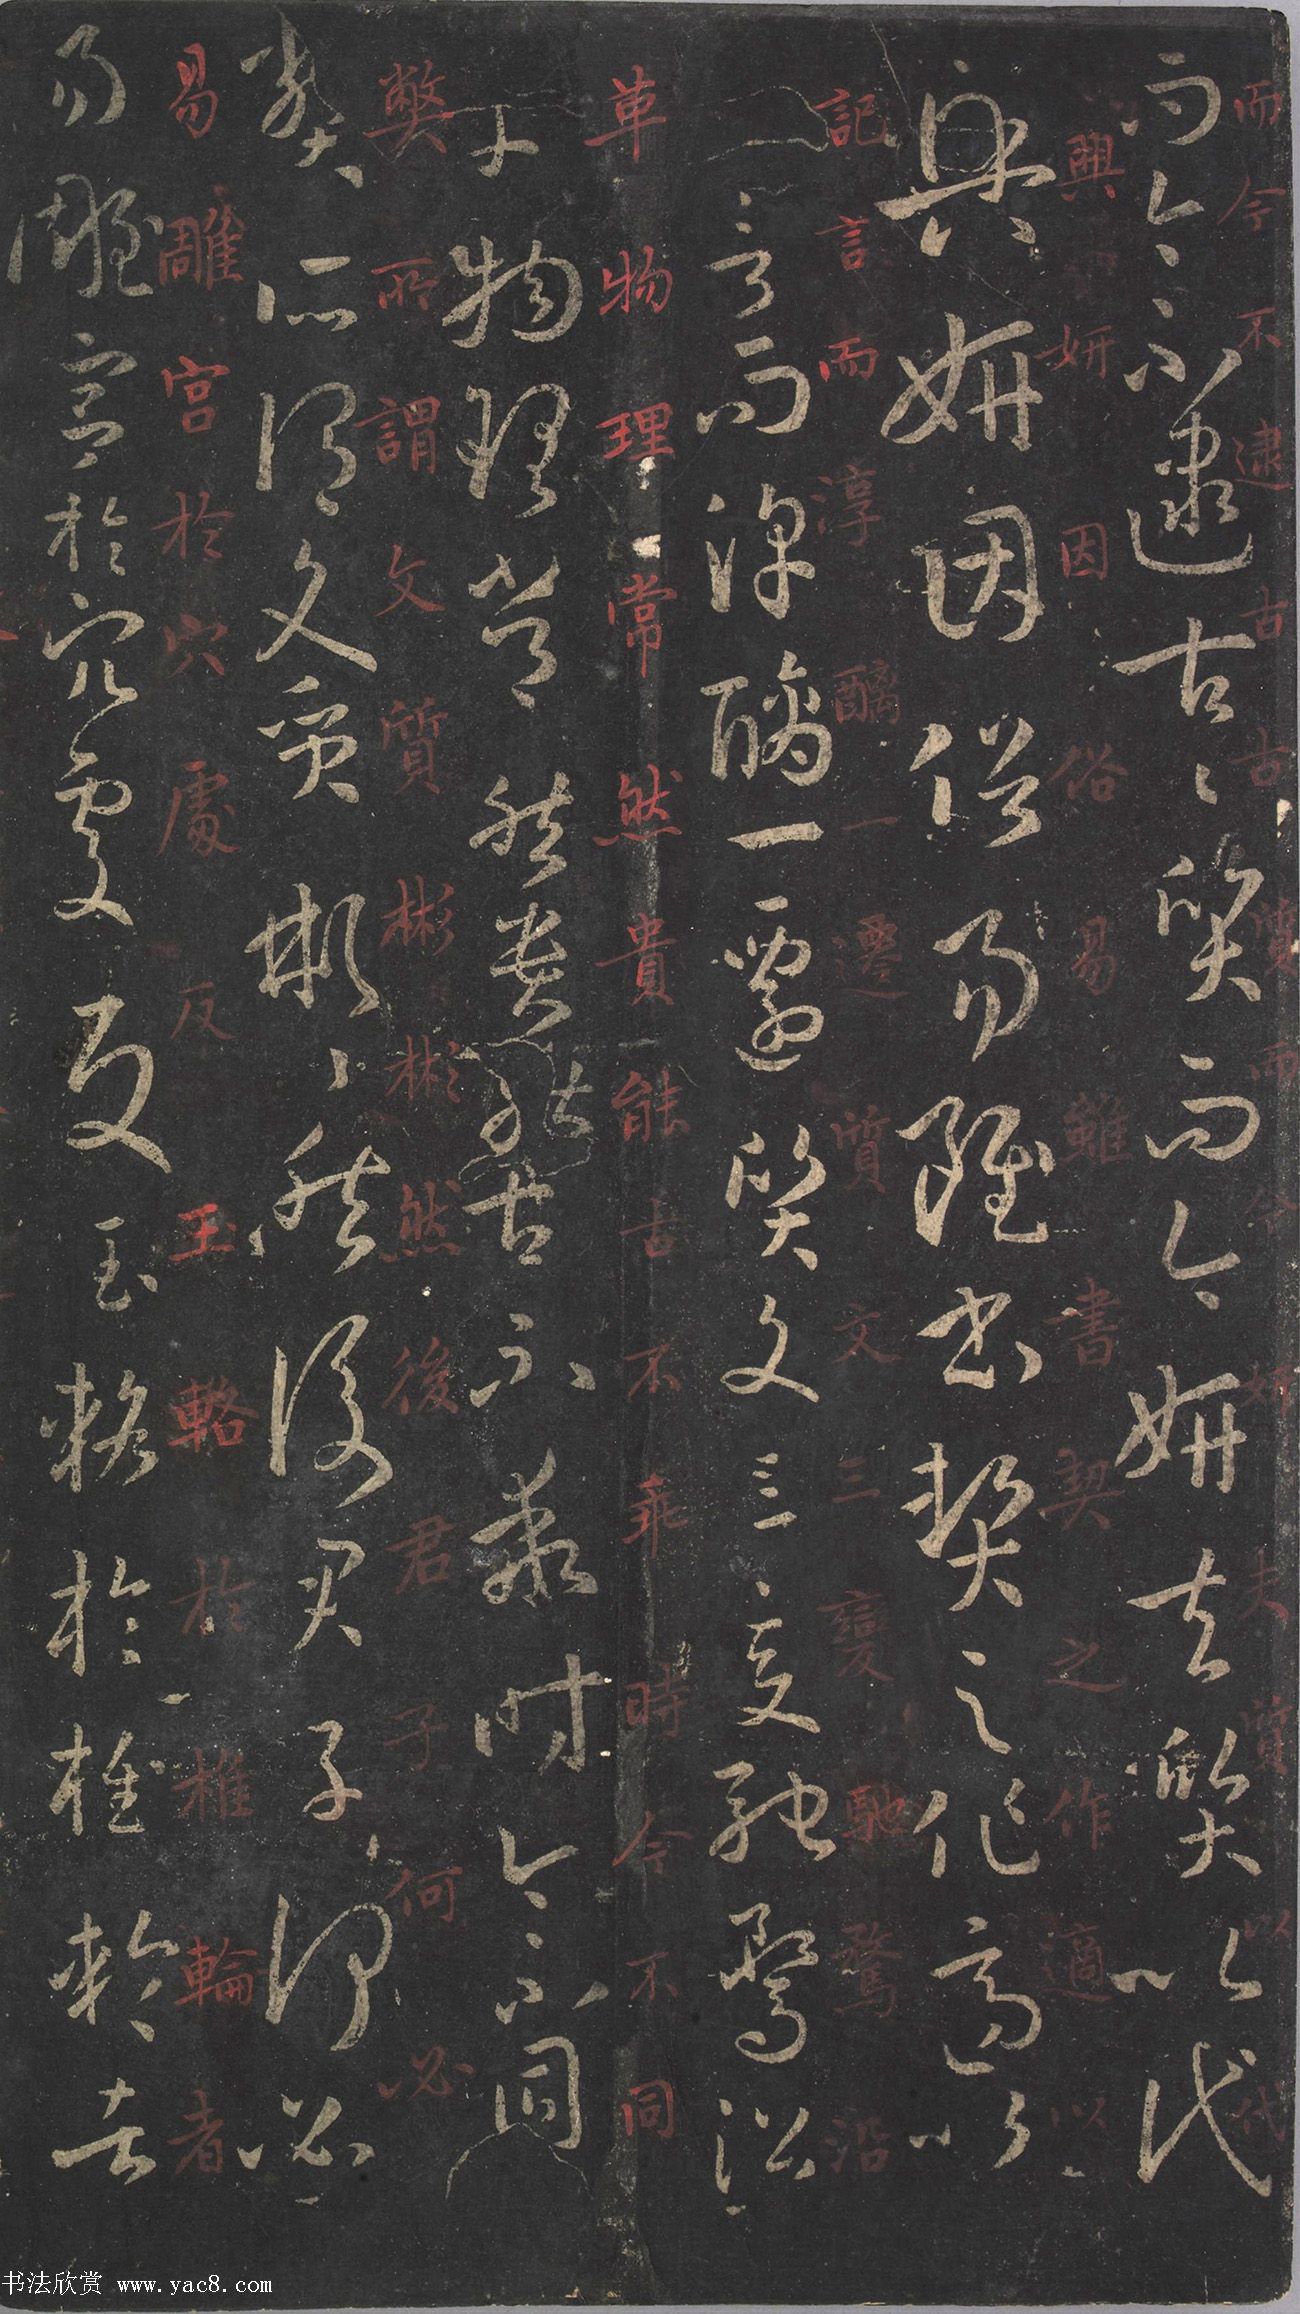 而今不逮古古質而今妍夫質以代
而今不逮古〻質而今妍夫質以代
興妍因俗易雖書契之作適以
興妍因俗易雖書契之作適以
記言而淳醨一遷質文三變馳騖沿
記言而淳醨一遷質文三變馳騖沿
革物理常然貴能古不乖時今不同
革物理常然貴能古不乖時今不同
弊所謂文質彬彬然後君子何必
弊所謂文質彬〻然後君子何必
易雕宮於穴處反玉輅於椎輪者
易雕宮於穴處反玉輅於椎輪者
书法欣赏 www.yac8.com